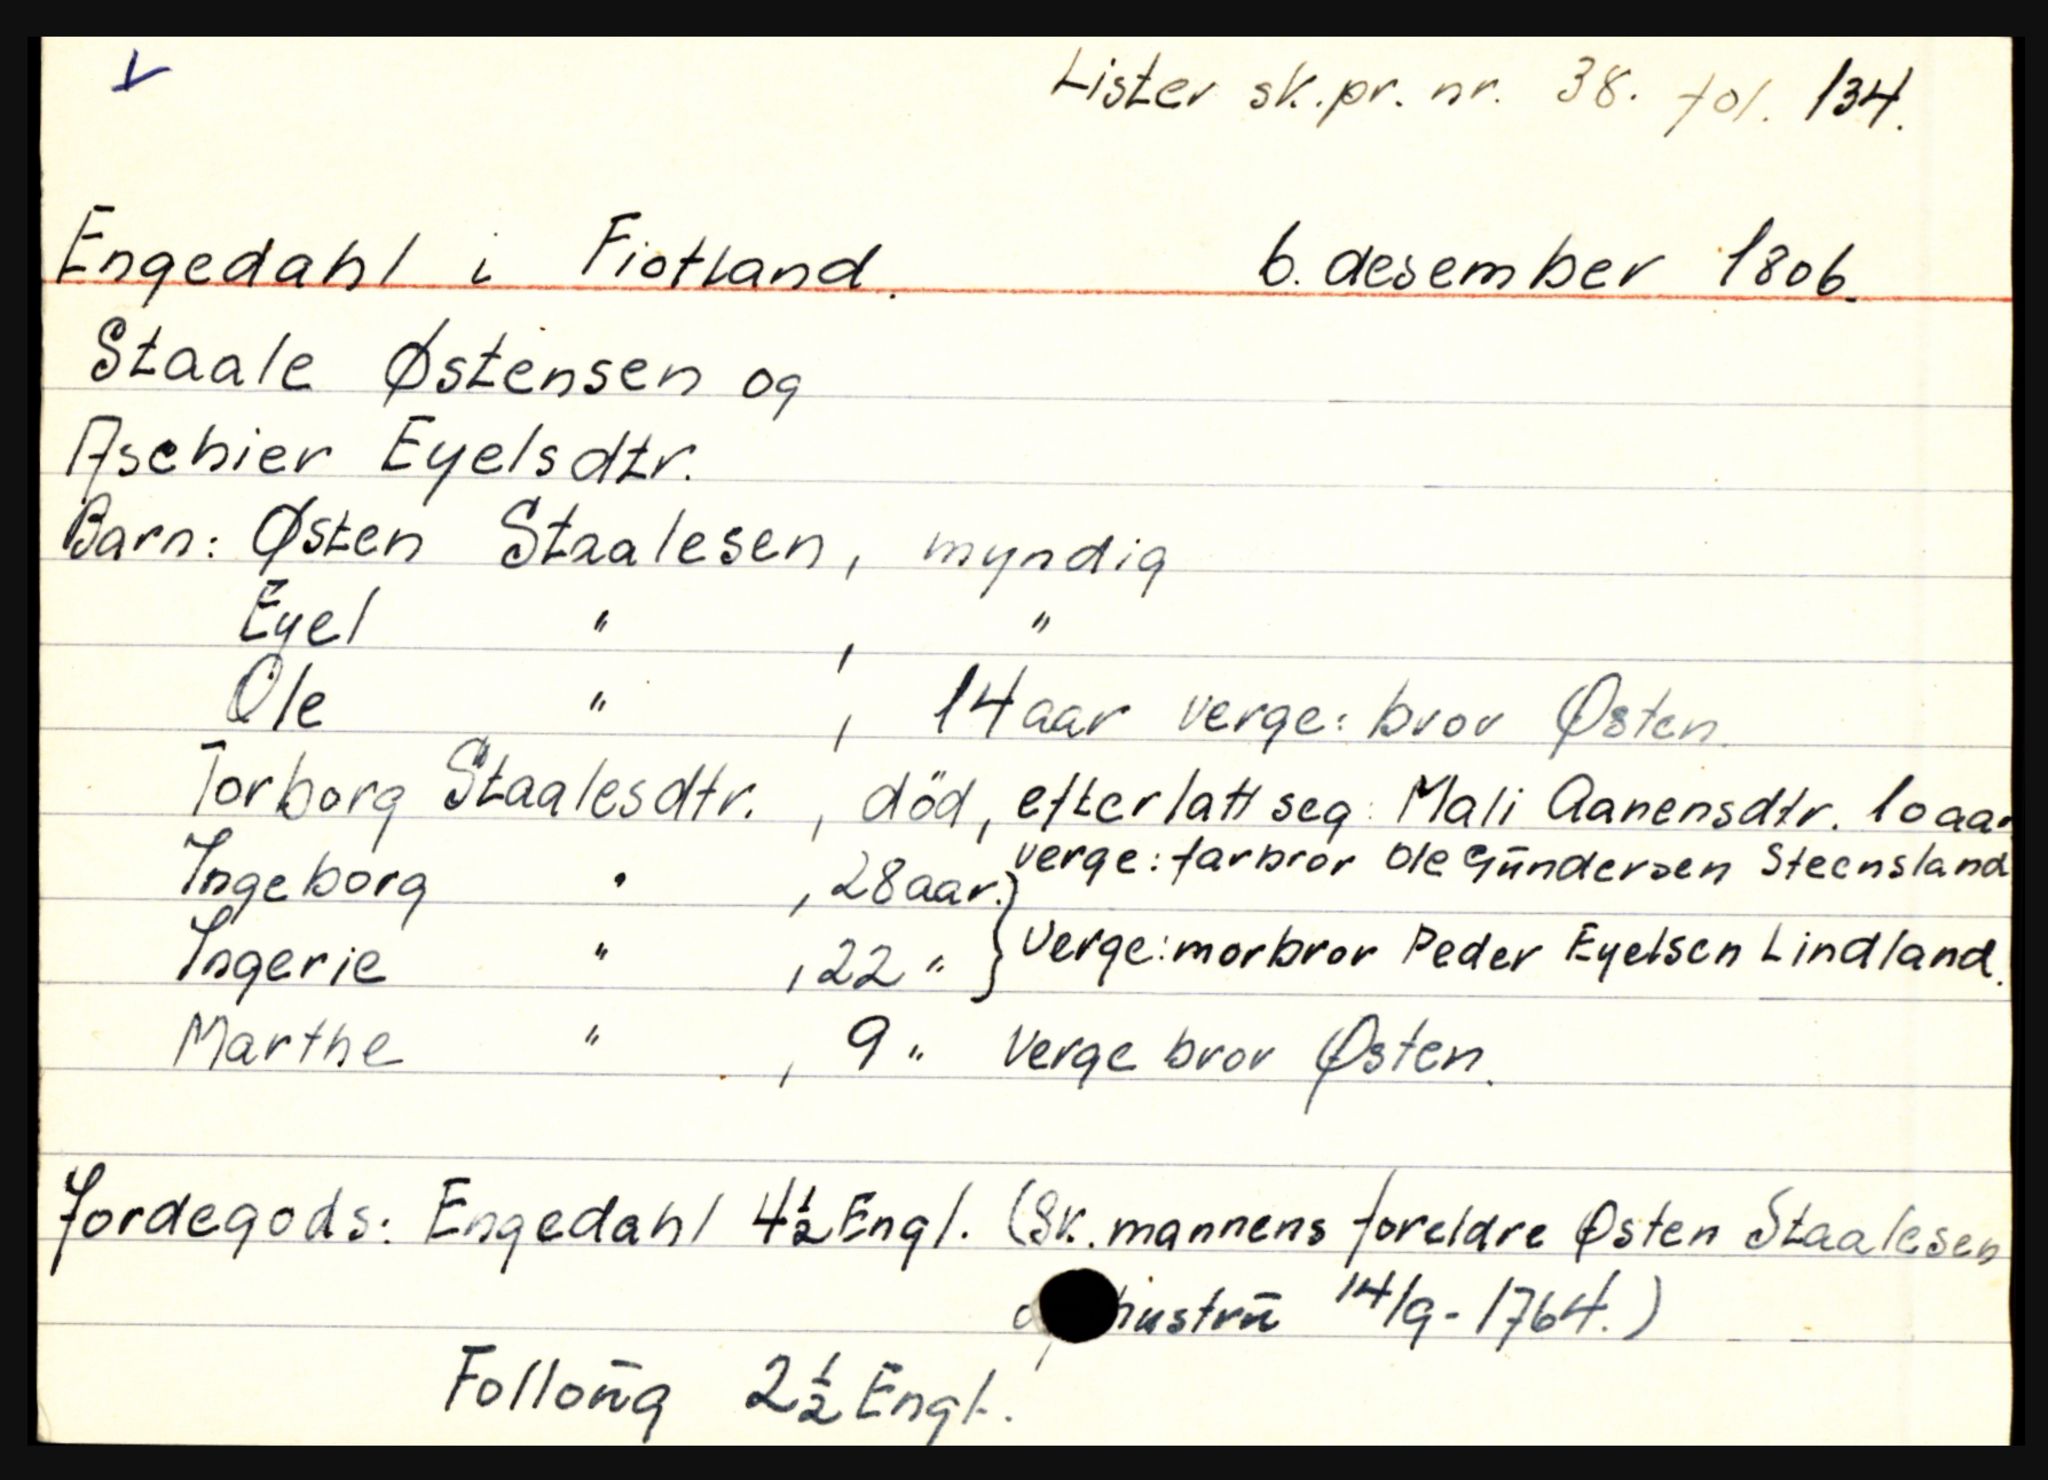 Lister sk.pr. nr. 38. fol. 134.
Engedahl i Fiotland. 6. desember 1806.
Staale Østensen og
Aschier Eyelsdtr.
Barn: Østen Staalesen, myndig
Eyel " , "
Ole " , 14 aar verge: bror Østen.
Torborg Staalesdtr. , död, etterlatt seg: Mali Aanensdtr. 10 aar
verge: farbror Ole Gūndersen Steensland
Ingeborg " , 28 aar.
Ingerie " , 22 " } Verge: morbror Peder Eyelsen Lindland.
Marthe " , 9 " Verge bror Østen.
Jordegods: Engedahl 4½ Engl. (Sk. mannens foreldre Østen Staalesen
hustrū 14/9-1764.)
Folloūg 2½ Engl.